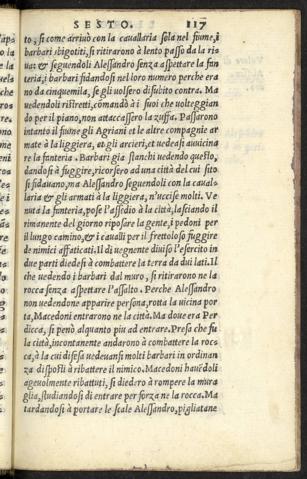 SESTO. 117
to, si come arriuò con la cauallaria sola nel fiume, i
barbari sbigotiti, si ritirarono à lento passo da la ris
ua: & seguendoli Alessandro senza aspettare la fan
teria, i barbari fidandosi nel loro numero perche era
no da cinquemila, se gli uolsero di subito contra. Ma
uedendoli ristretti, comãdò à i suoi che uolteggian
do per il piano, non attaccassero la zuffa. Passarono
intanto il fiume gli Agriani et le altre compagnie ar
mate à la liggiera, et gli arcieri, et uedeasi auuicina
re la fanteria. I Barbari gia stanchi uedendo questo,
dandosi à fuggire, ricorsero ad una città del cui sito
si fidauano, ma Alessandro seguendoli con la cauals
laria & gli armati à la liggiera, n'uccise molti. Ve
nuta la fanteria, pose l'assedio à la città, lasciando il
rimanente del giorno riposare la gente, i pedoni per
il lungo camino, & i caualli per il frettoloso fuggire
de nimici affaticati. Il di uegnente diuise l'esercito in
due parti diedesi à combattere la terra da dui lati. Il
che uedendo i barbari dal muro, si ritirarono ne la
rocca senza aspettare l'assalto. Perche Alessandro
non uedendone apparire persona, rotta la uicina por
ta, Macedoni entrarono ne la città. Ma doue era Per
dicca, si penò alquanto piu ad entrare. Presa che fu
la città, incontanente andarono à combattere la rocs
ca, à la cui difesa uedeuansi molti barbari in ordinan
za disposti à ribattere il nimico. Macedoni hauẽdoli
ageuolmente ribattuti, si diedero à rompere la mura
glia, studiandosi di entrare per forza ne la rocca. Ma
tardandosi à portare le scale Alessandro, pigliatane